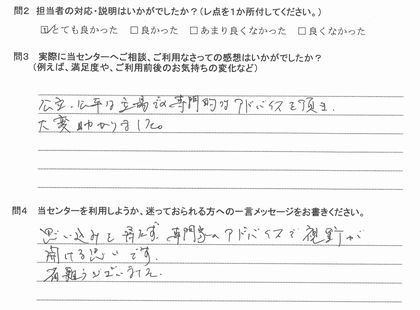 問2 担当者の対応・説明はいかがでしたか?(レ点を1か所付してください。)
☑とても良かった □良かった □あまり良くなかった □良くなかった
問3 実際に当センターへご相談、ご利用なさっての感想はいかがでしたか?
(例えば、満足度や、ご利用前後のお気持ちの変化など)
公正、公平な立場の専門的なアドバイスを頂き
大変助かりました。
問4 当センターを利用しようか、迷っておられる方への一言メッセージをお書きください。
思い込みを 専門家のアドバイスで視野が
開ける思いです。
有難うございました